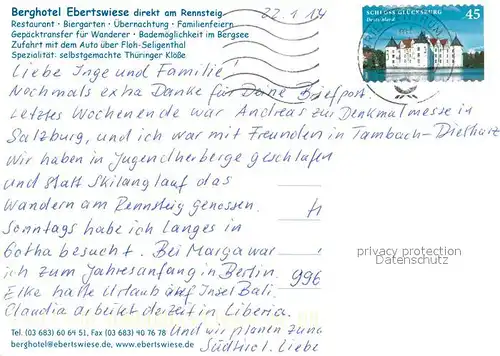 Berghotel Ebertswiese direkt am Rennsteig
Restaurant • Biergarten • Übernachtung • Familienfeiern
Gepäcktransfer für Wanderer • Bademöglichkeit im Bergsee
Zufahrt mit dem Auto über Floh-Seligenthal
Spezialität: selbstgemachte Thüringer Klöße
22.1.14
SCHLOSS GLÜCKSBURG
Deutschland
45
Liebe Inge und Familie!
Nochmals extra Danke für Deine Briefpost.
Letztes Wochenende war Andreas zur Denkmalmesse in
Salzburg, und ich war mit Freunden in Tambach-Dietharz
Wir haben in Jugendherberge geschlafen
und statt Skilanglauf das
Wandern am Rennsteig genossen.
Sonntags habe ich Langes in
Gotha besucht. Bei Marga war
ich zum Jahresanfang in Berlin.
996
Elke hatte Urlaub auf Insel Bali.
Claudia arbeitet derzeit in Liberia.
Und wir planen zum
Südtirol. Liebe
privacy protection
Datenschutz
Tel. (03 683) 60 64 51, Fax (03 683) 40 76 78
berghotel@ebertswiese.de, www.ebertswiese.de